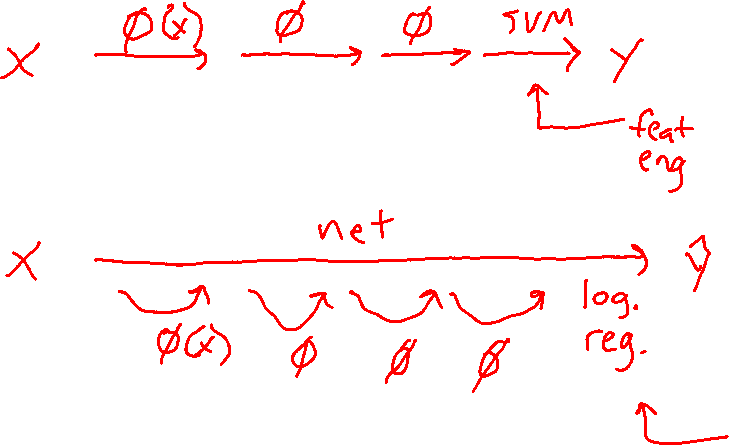 X ϕ(x) ϕ ϕ SVM Y
feat
eng
net
X ŷ
ϕ(x) ϕ ϕ ϕ log.
reg.